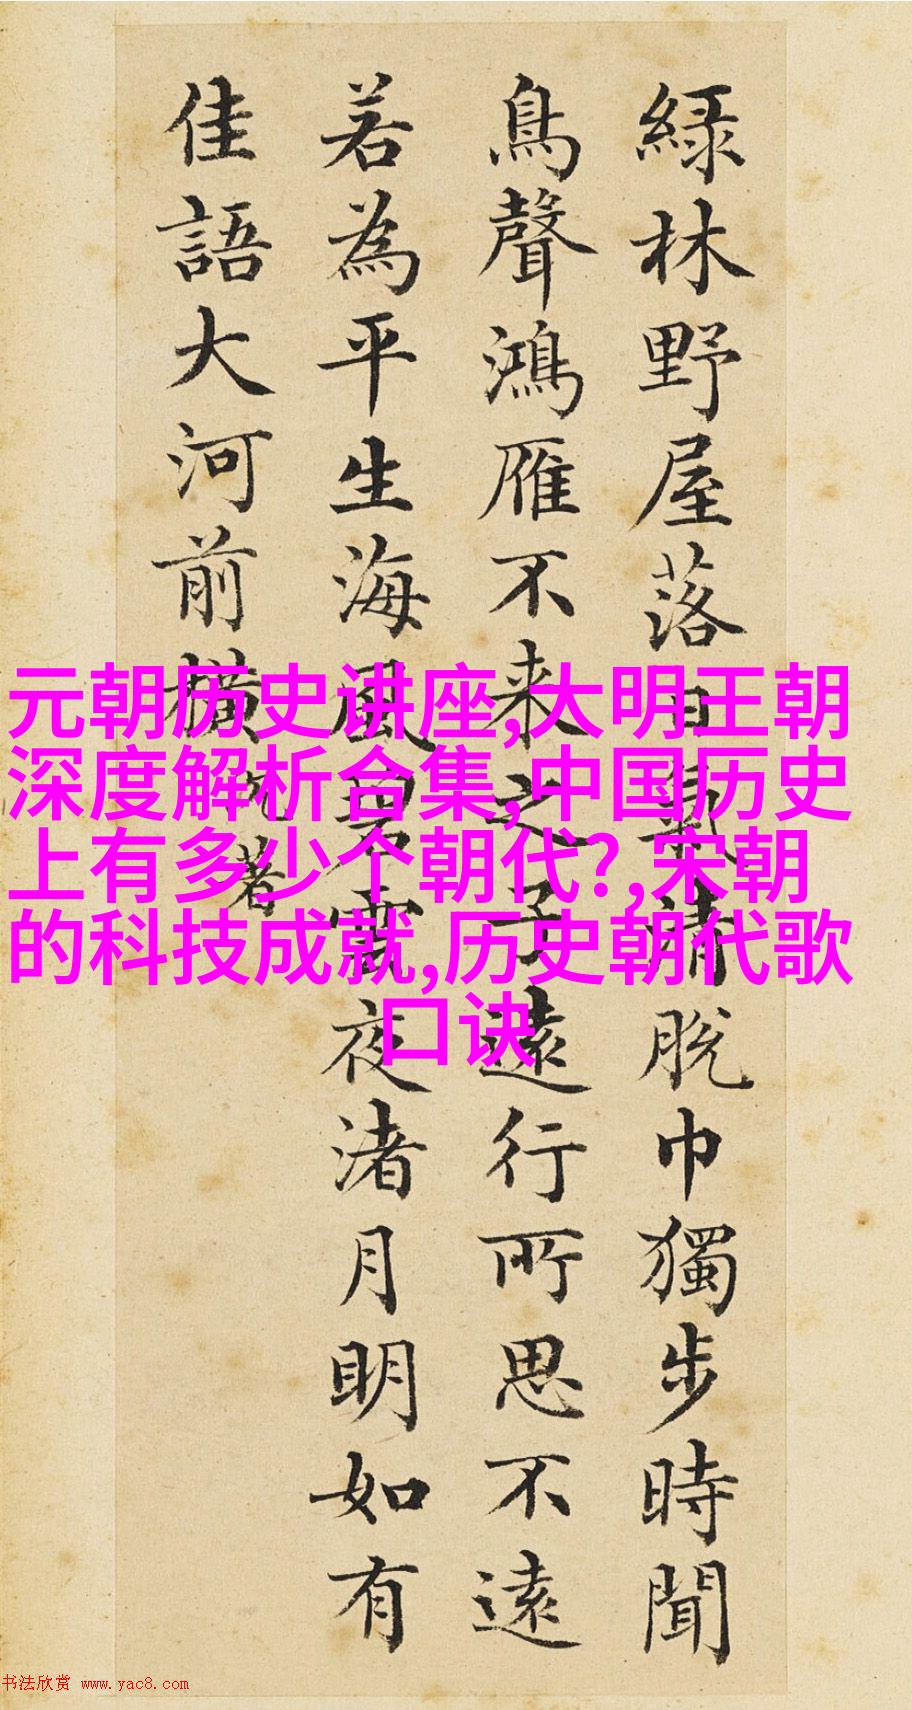 綠林野屋落日氣清脫巾獨步時聞
鳥聲鴻雁不来之子遠行所思不遠
若為平生海風碧雲夜渚月明如有
佳語大河前橫
著
元朝历史讲座,大明王朝
深度解析合集,中国历史
上有多少个朝代?,宋朝
的科技成就,历史朝代歌
口诀
书法欣赏 www.yac8.com